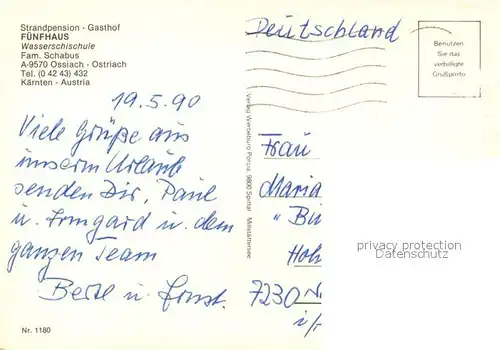 Strandpension - Gasthof
FÜNFHAUS
Wasserschischule
Fam. Schabus
A-9570 Ossiach - Ostriach
Tel. (0 42 43) 432
Kärnten - Austria
19.5.90
Viele Grüße aus
unserem Urlaub
senden Dir, Paul
u. Irmgard u. dem
ganzen Team
Bertl u. Ernst.
Nr. 1180
Deutschland
Benutzen
Sie das
verbilligte
Grußporto
Frau
Maria
"Bü
Hoh
7230
i/
privacy protection
Datenschutz